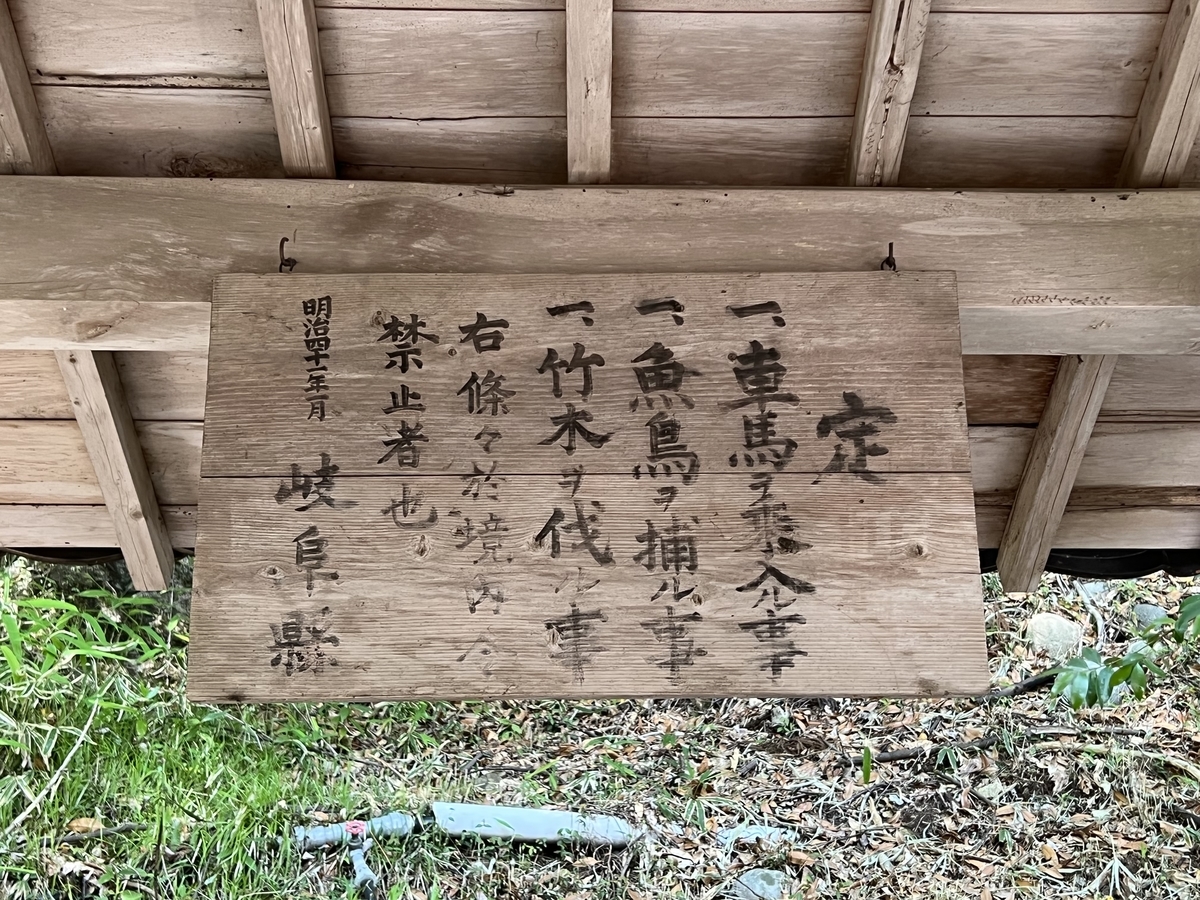 定
一、車馬ヲ乗入ル事
一、魚鳥ヲ捕ル事
一、竹木ヲ伐ル事
右條々於境内令
禁止者也
明治四十一年一月 岐阜縣